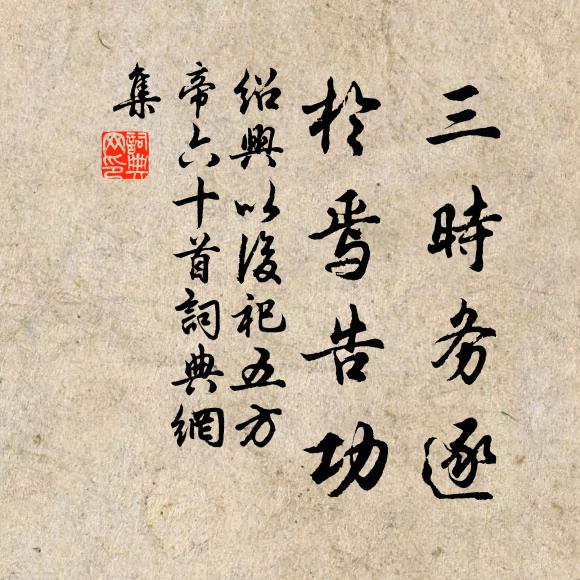 三時務逐
於焉告功
紹興以後祀五方
帝六十首詞典網
集
詞典
網印